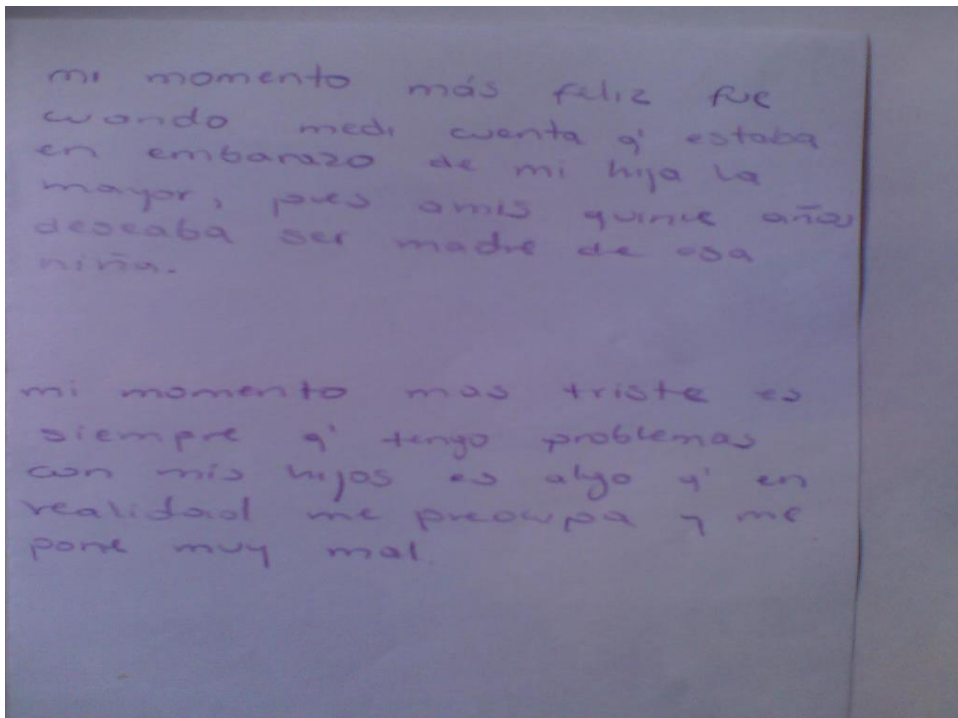 mi momento más feliz fue
cuando medi cuenta q' estaba
en embarazo de mi hija la
mayor, pues amis quince años
deseaba ser madre de esa
niña.
mi momento mas triste es
siempre q' tengo problemas
con mis hijos es algo q' en
realidad me preocupa y me
pone muy mal.